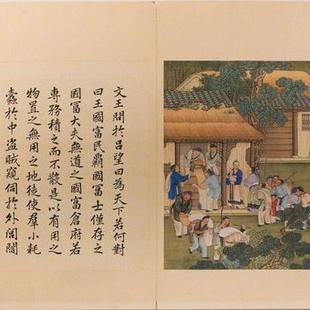 文王問於呂望曰為天下若何對
曰王國富民霸國富士僅存之
國富大夫無道之國富倉府若
專務積之而不散是以有用之
物置之無用之地徒使羣小耗
蠹於中盜賊窺伺於外閭閻